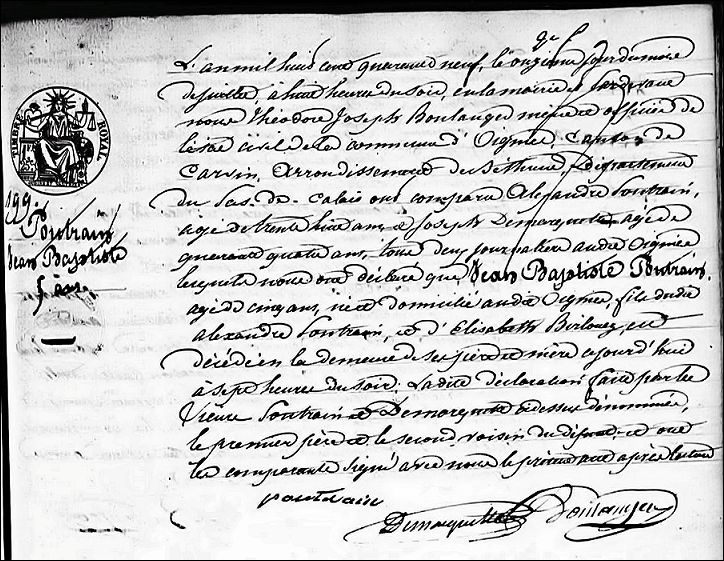 L'an mil huit cent quarante neuf, le onzième jour du mois
de juillet à huit heures du soir, en la mairie et par devant
nous Théodore Joseph Boulanger maire et officier de
l'état civil de la commune d'Oignies, Canton de
Carvin, Arrondissement de Béthune, Département
du Pas-de-Calais ont comparu Alexandre Poutrain,
agé de trente huit ans, et Joseph Demarquette agé de
quarante quatre ans, tous deux journaliers audit Oignies
lesquels nous ont déclaré que Jean Baptiste Poutrain
agé de cinq ans, né et domicilié audit Oignies, fils dudit
alexandre Poutrain, et d'Elisabeth est
décédé en la demeure de ses père et mère aujourd'hui
à sept heures du soir. La dite déclaration faite par les
Sieurs Poutrain et Demarquette ci dessus dénommés,
le premier père et le second, voisin du défunt, et ont
les comparants signé avec nous le présent acte après lecture
poutrain
Demarquette Boulanger
TIMBRE ROYAL
199.
Poutrain
Jean Baptiste
5 ans